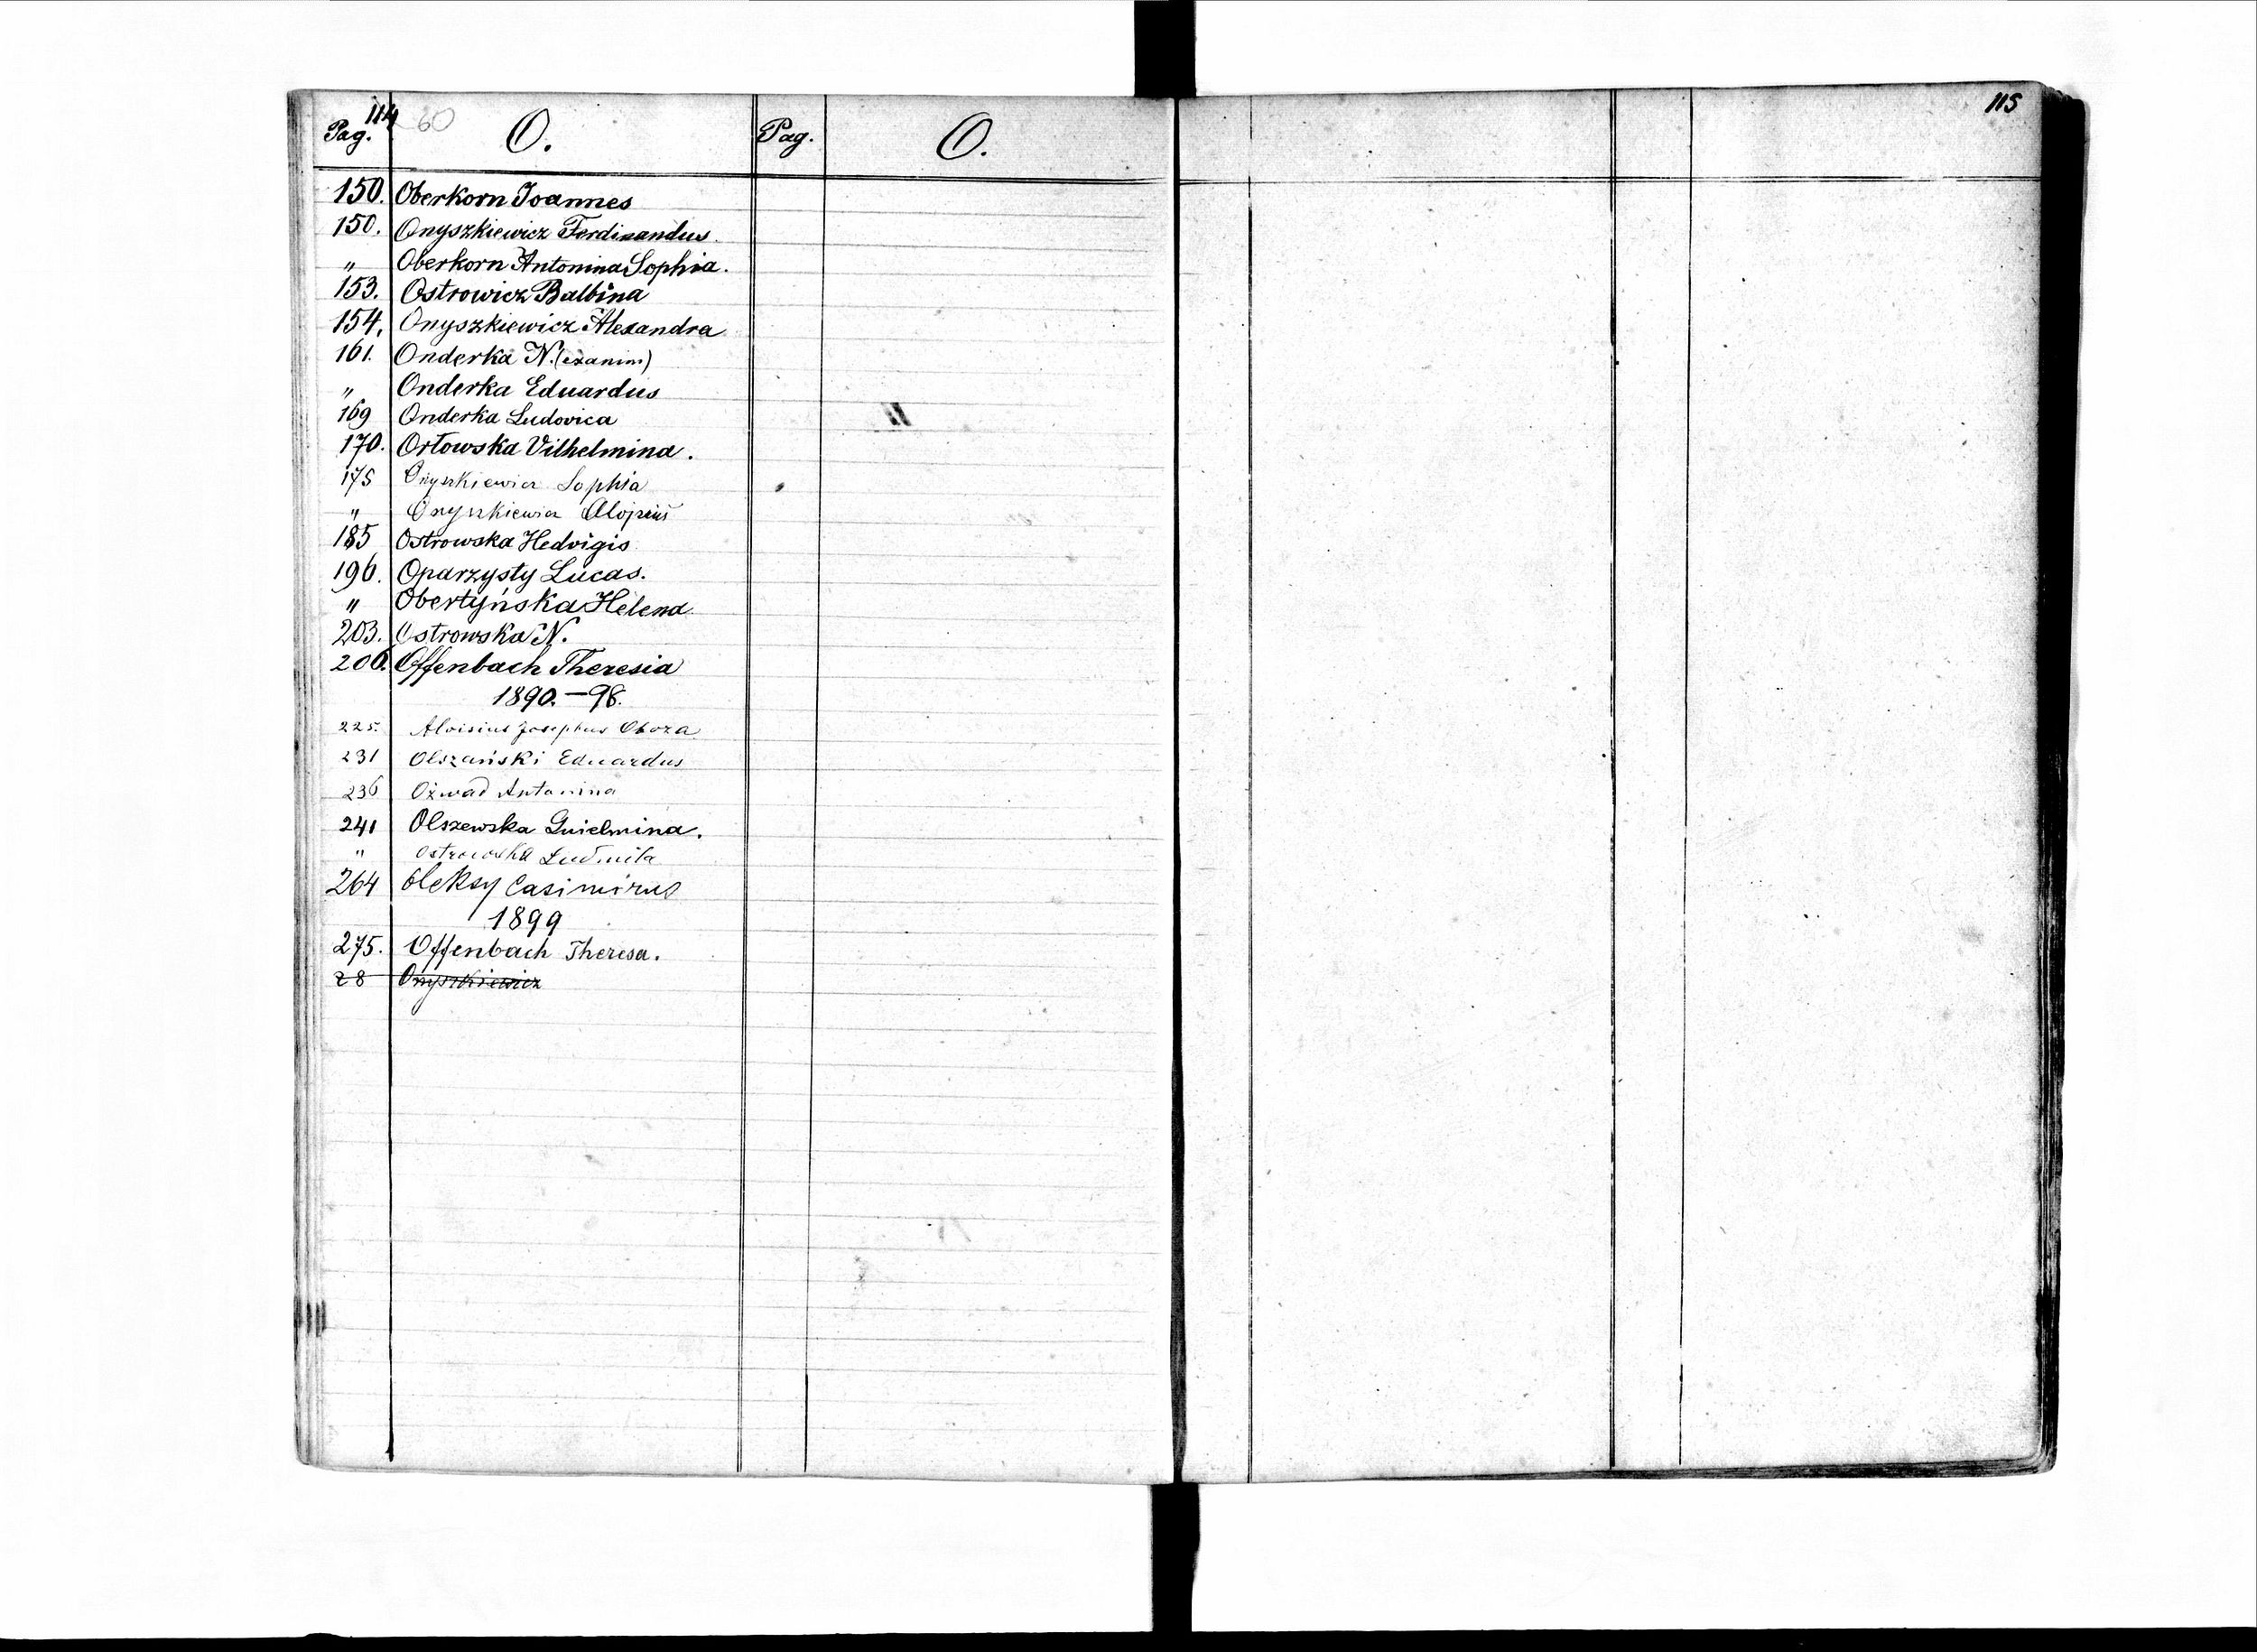 114 60
Pag. O. Pag. O.
115
150. Oberkorn Joannes
150. Onyszkiewicz Ferdinandus.
" Oberkorn Antonina Sophia.
153. Ostrowicz Balbina
154. Onyszkiewicz Alexandra
161. Onderka N. (exanim)
" Onderka Eduardus
169 Onderka Ludovica
170. Orłowska Vilhelmina.
175 Onyszkiewicz Sophia
" Onyszkiewicz
185 Ostrowska Hedvigis
196. Oparzysty Lucas.
" Obertyńska Helena
203. Ostrowska N.
206. Offenbach Theresia
1890.-98.
225. Aloisius Josephus Oboza
231 Olszański Eduardus
236 Antonina
241 Olszewska Guielmina.
" Ostrowska Ludmila
264 Oleksy Casimirus
1899
275. Offenbach Theresa.
28 Onyszkiewicz